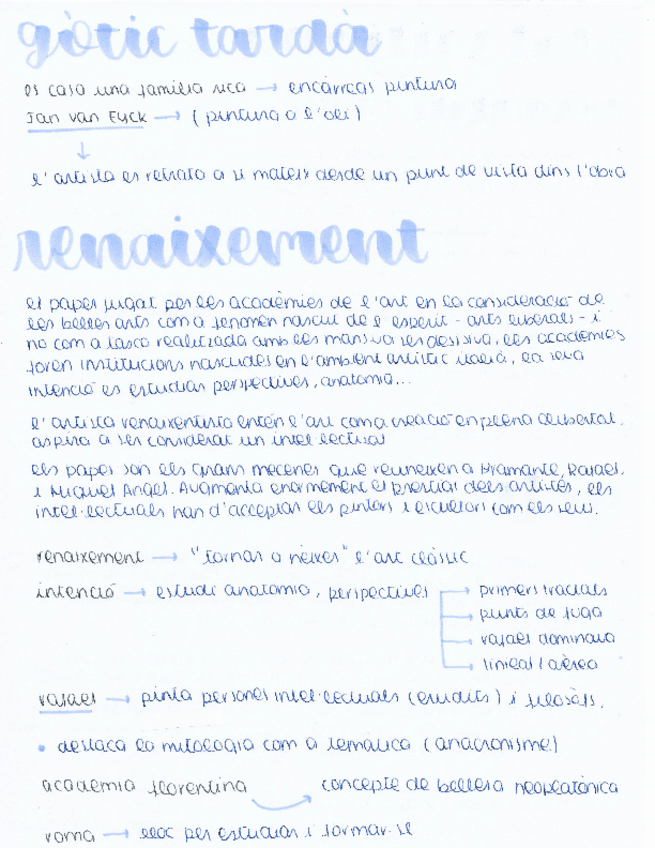 gòtic tardà
es casa una família rica → encàrregs pintura
Jan van Eyck → (pintura a l'oli)
l'artista es retrata a si mateix desde un punt de vista dins l'obra
renaixement
el paper jugat per les acadèmies de l'art en la consideració de
les belles arts com a fenomen nascut de l'esperit - arts liberals - i
no com a tasca realitzada amb les mans va ser desisiva, les acadèmies
foren institucions nascudes en l'ambient artístic italià, la seva
intenció es estudiar perspectives, anatomia...
l'artista renaixentista entén l'art com a creació en plena llibertat.
aspira a ser considerat un intel·lectual
els papes son els grans mecenes que reuneixen a Bramante, Rafael,
i Miquel Angel. Augmenta enormement el prestigi dels artistes, els
intel·lectuals han d'acceptar els pintors i escultors com els seus.
renaixement → "tornar a néixer" l'art clàssic
intenció → estudi anatomia, perspectives → primers traçats
→ punts de fuga
→ rafael dominava
→ lineal / aèrea
rafael → pinta persones intel·lectuals (erudits) i filòsofs.
• destaca la mitologia com a temàtica (anacronisme)
acadèmia florentina → concepte de bellesa neoplatònica
roma → lloc per estudiar i formar-se